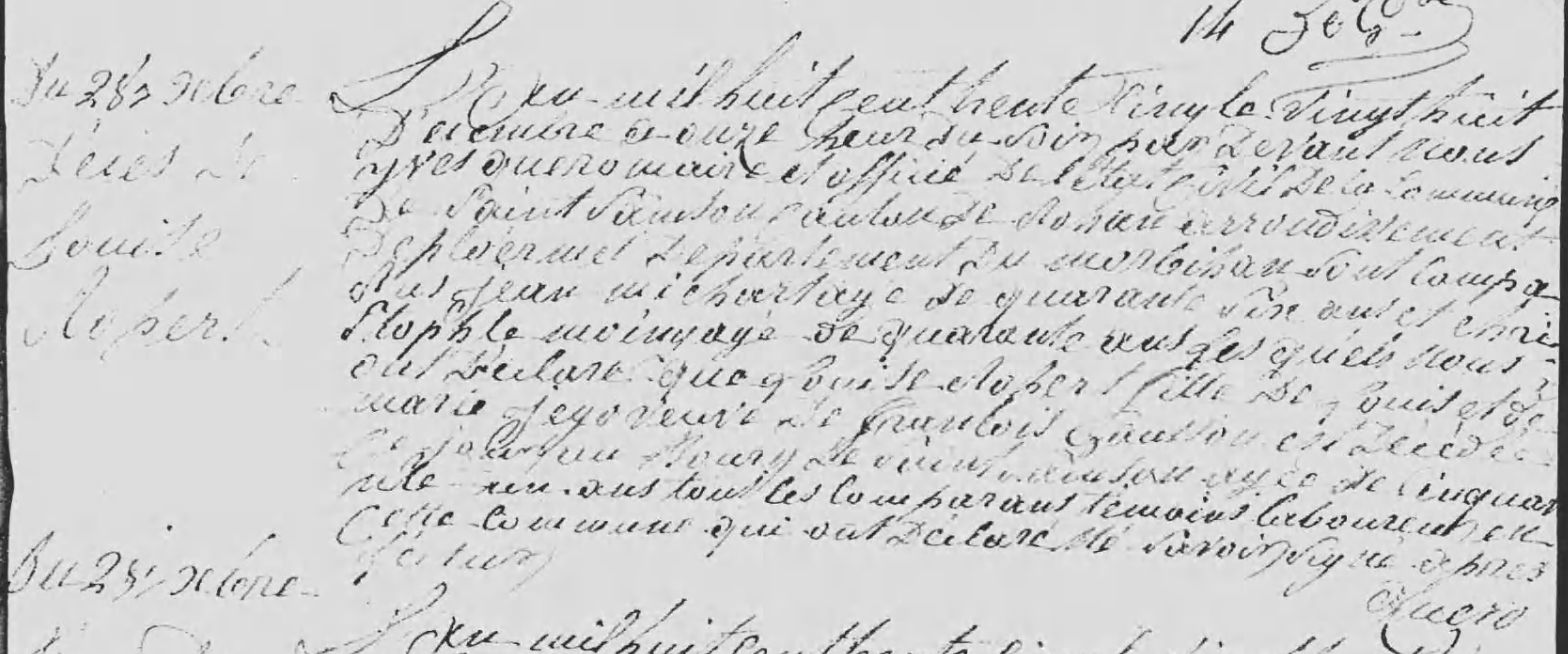 14
Du 28 Xbre
Décés de
Louise
Ropert
L'an mil huit cent trente cinq le vingt huit
Décembre a onze heur du soir par devant nous
yves quero maire et officié de l'état civil de la commune
De saint samson canton de rohan arrondissement
De ploermel Département du morbihan sont compa
rus jean michart agé de quarante six ans et chri-
stophe le moing agé de quarante ans les quels nous
ont Déclaré que Louise Ropert fille de Louis et de
marie jego veuve de francois est décédé
ce jour au Bourg de saint samson agée de cinquan
nte un ans tout les comparans temoins laboureur en
cette commune qui ont Déclaré né savoir signé apres
lecture
Quero
Du 28 Xbre
L'an mil huit cent trente cinq